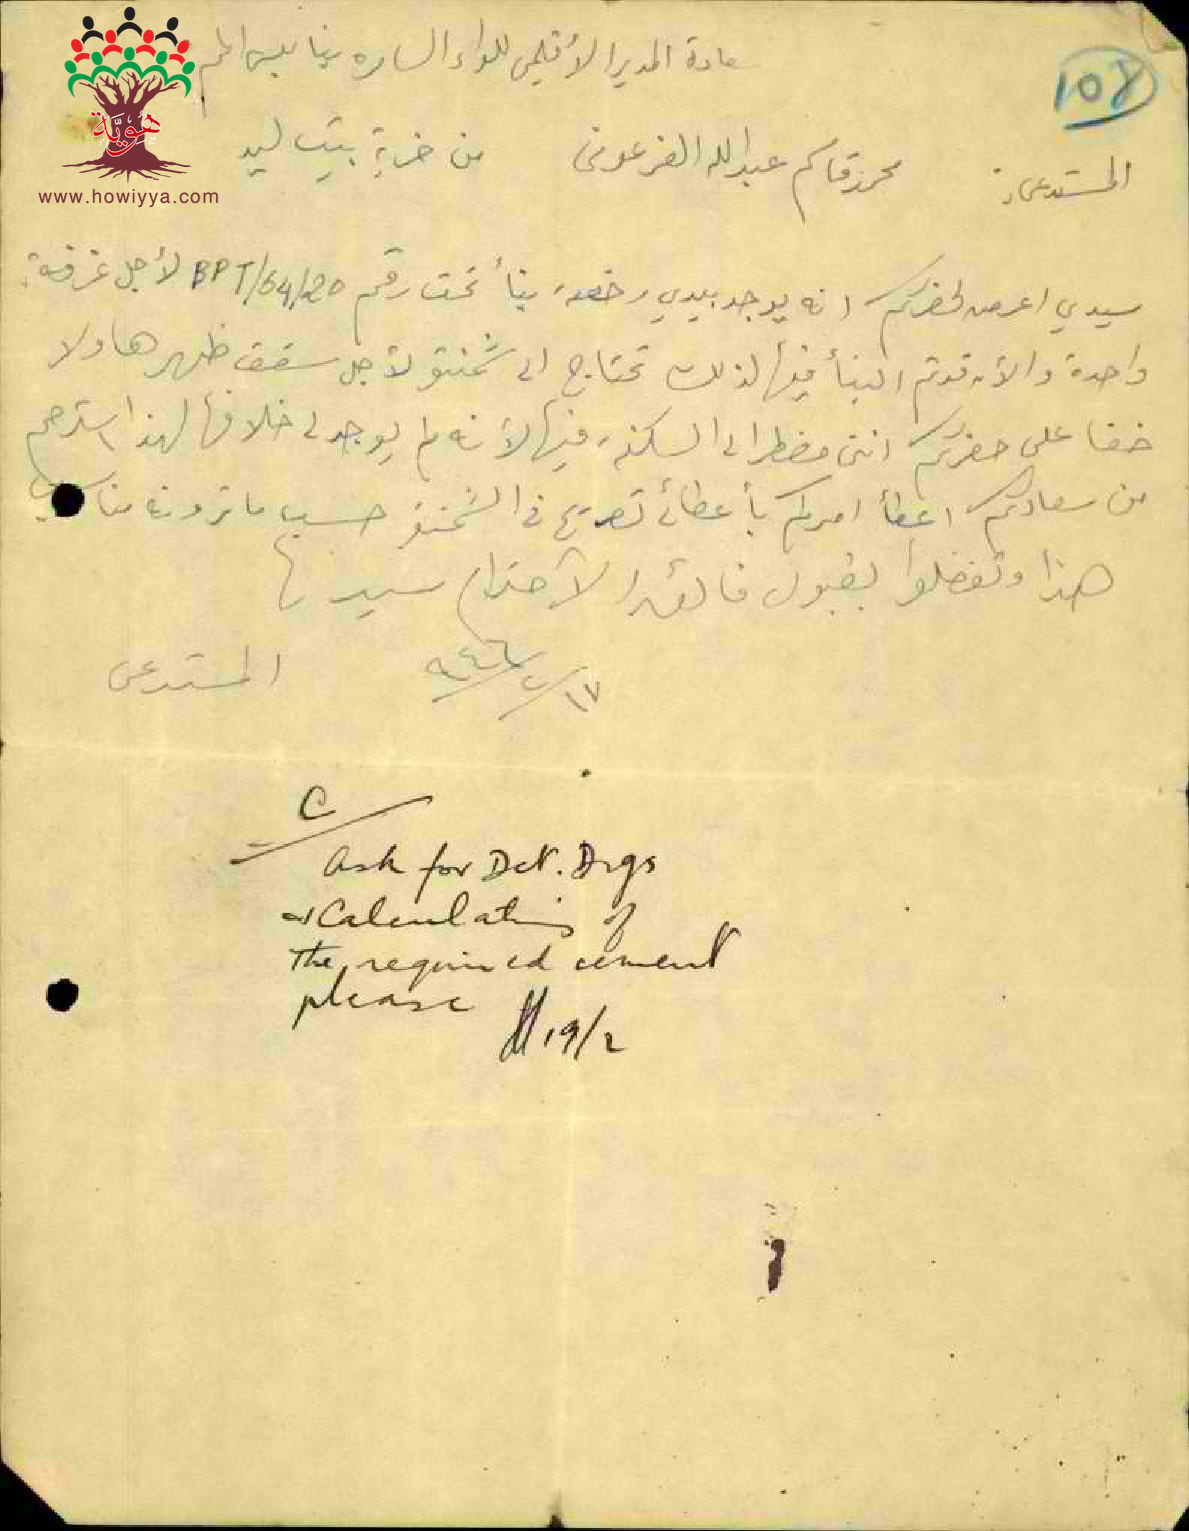 هوية
www.howiyya.com
108
سعادة المدير الأقليمي للواء السامره بنابلس المحترم
المستدعي: محمد قاسم عبدالله الفرعوني من خربة بيت ليد
سيدي اعرض لحضرتكم انه يوجد بيدي رخصة بنأ تحت رقم BPT/64/20 لأجل غرفة
واحدة والأن قد تم البنأ فيها لذلك تحتاج الى شمنتو لأجل سقف ظهرها ولا
خفا على حضرتكم انني مضطر الى السكنه فيها لأنه لم يوجد لي خلافها لهذا استرحم
من سعادتكم اعطأ امركم بأعطائي تصريح في الشمنتو حسب ما ترونه مناسب
هذا وتفضلوا بقبول فائق الاحترام سيدي
١٧/٢/٩٤٦ المستدعي
C
Ask for Det. Drgs
& Calculations of
the required cement
please
19/2